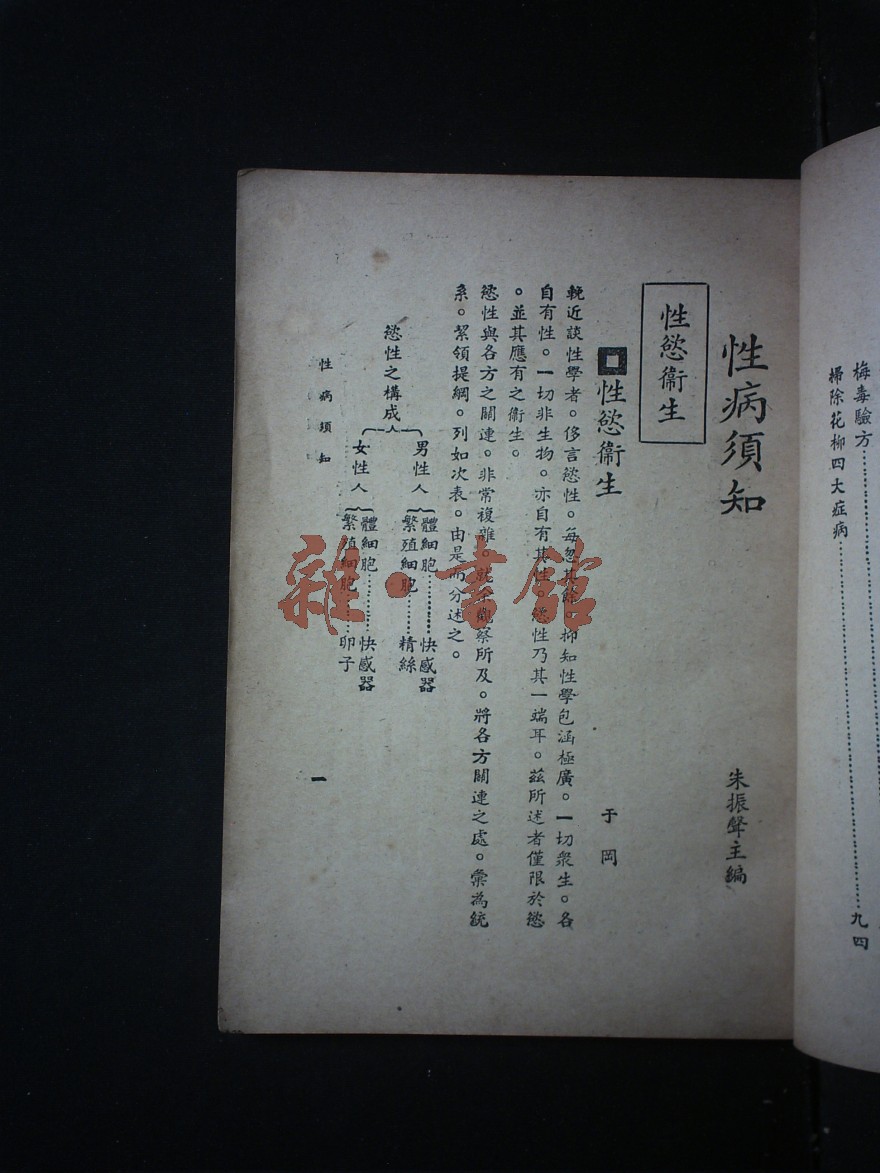 梅毒驗方……九四
掃除花柳四大症病
性病須知
朱振聲主編
性慾衞生
性慾衞生
于岡
輓近談性學者。侈言慾性。每忽其餘。抑知性學包涵極廣。一切衆生。各
自有性。一切非生物。亦自有其性。慾性乃其一端耳。茲所述者僅限於慾
。並其應有之衞生。
慾性與各方之關連。非常複雜。就余觀察所及。將各方關連之處。彙為統
系。絜領提綱。列如次表。由是而分述之。
慾性之構成
男性人
體細胞……快感器
繁殖細胞……精絲
女性人
體細胞……快感器
繁殖細胞……卵子
性病須知
一
雜·書館